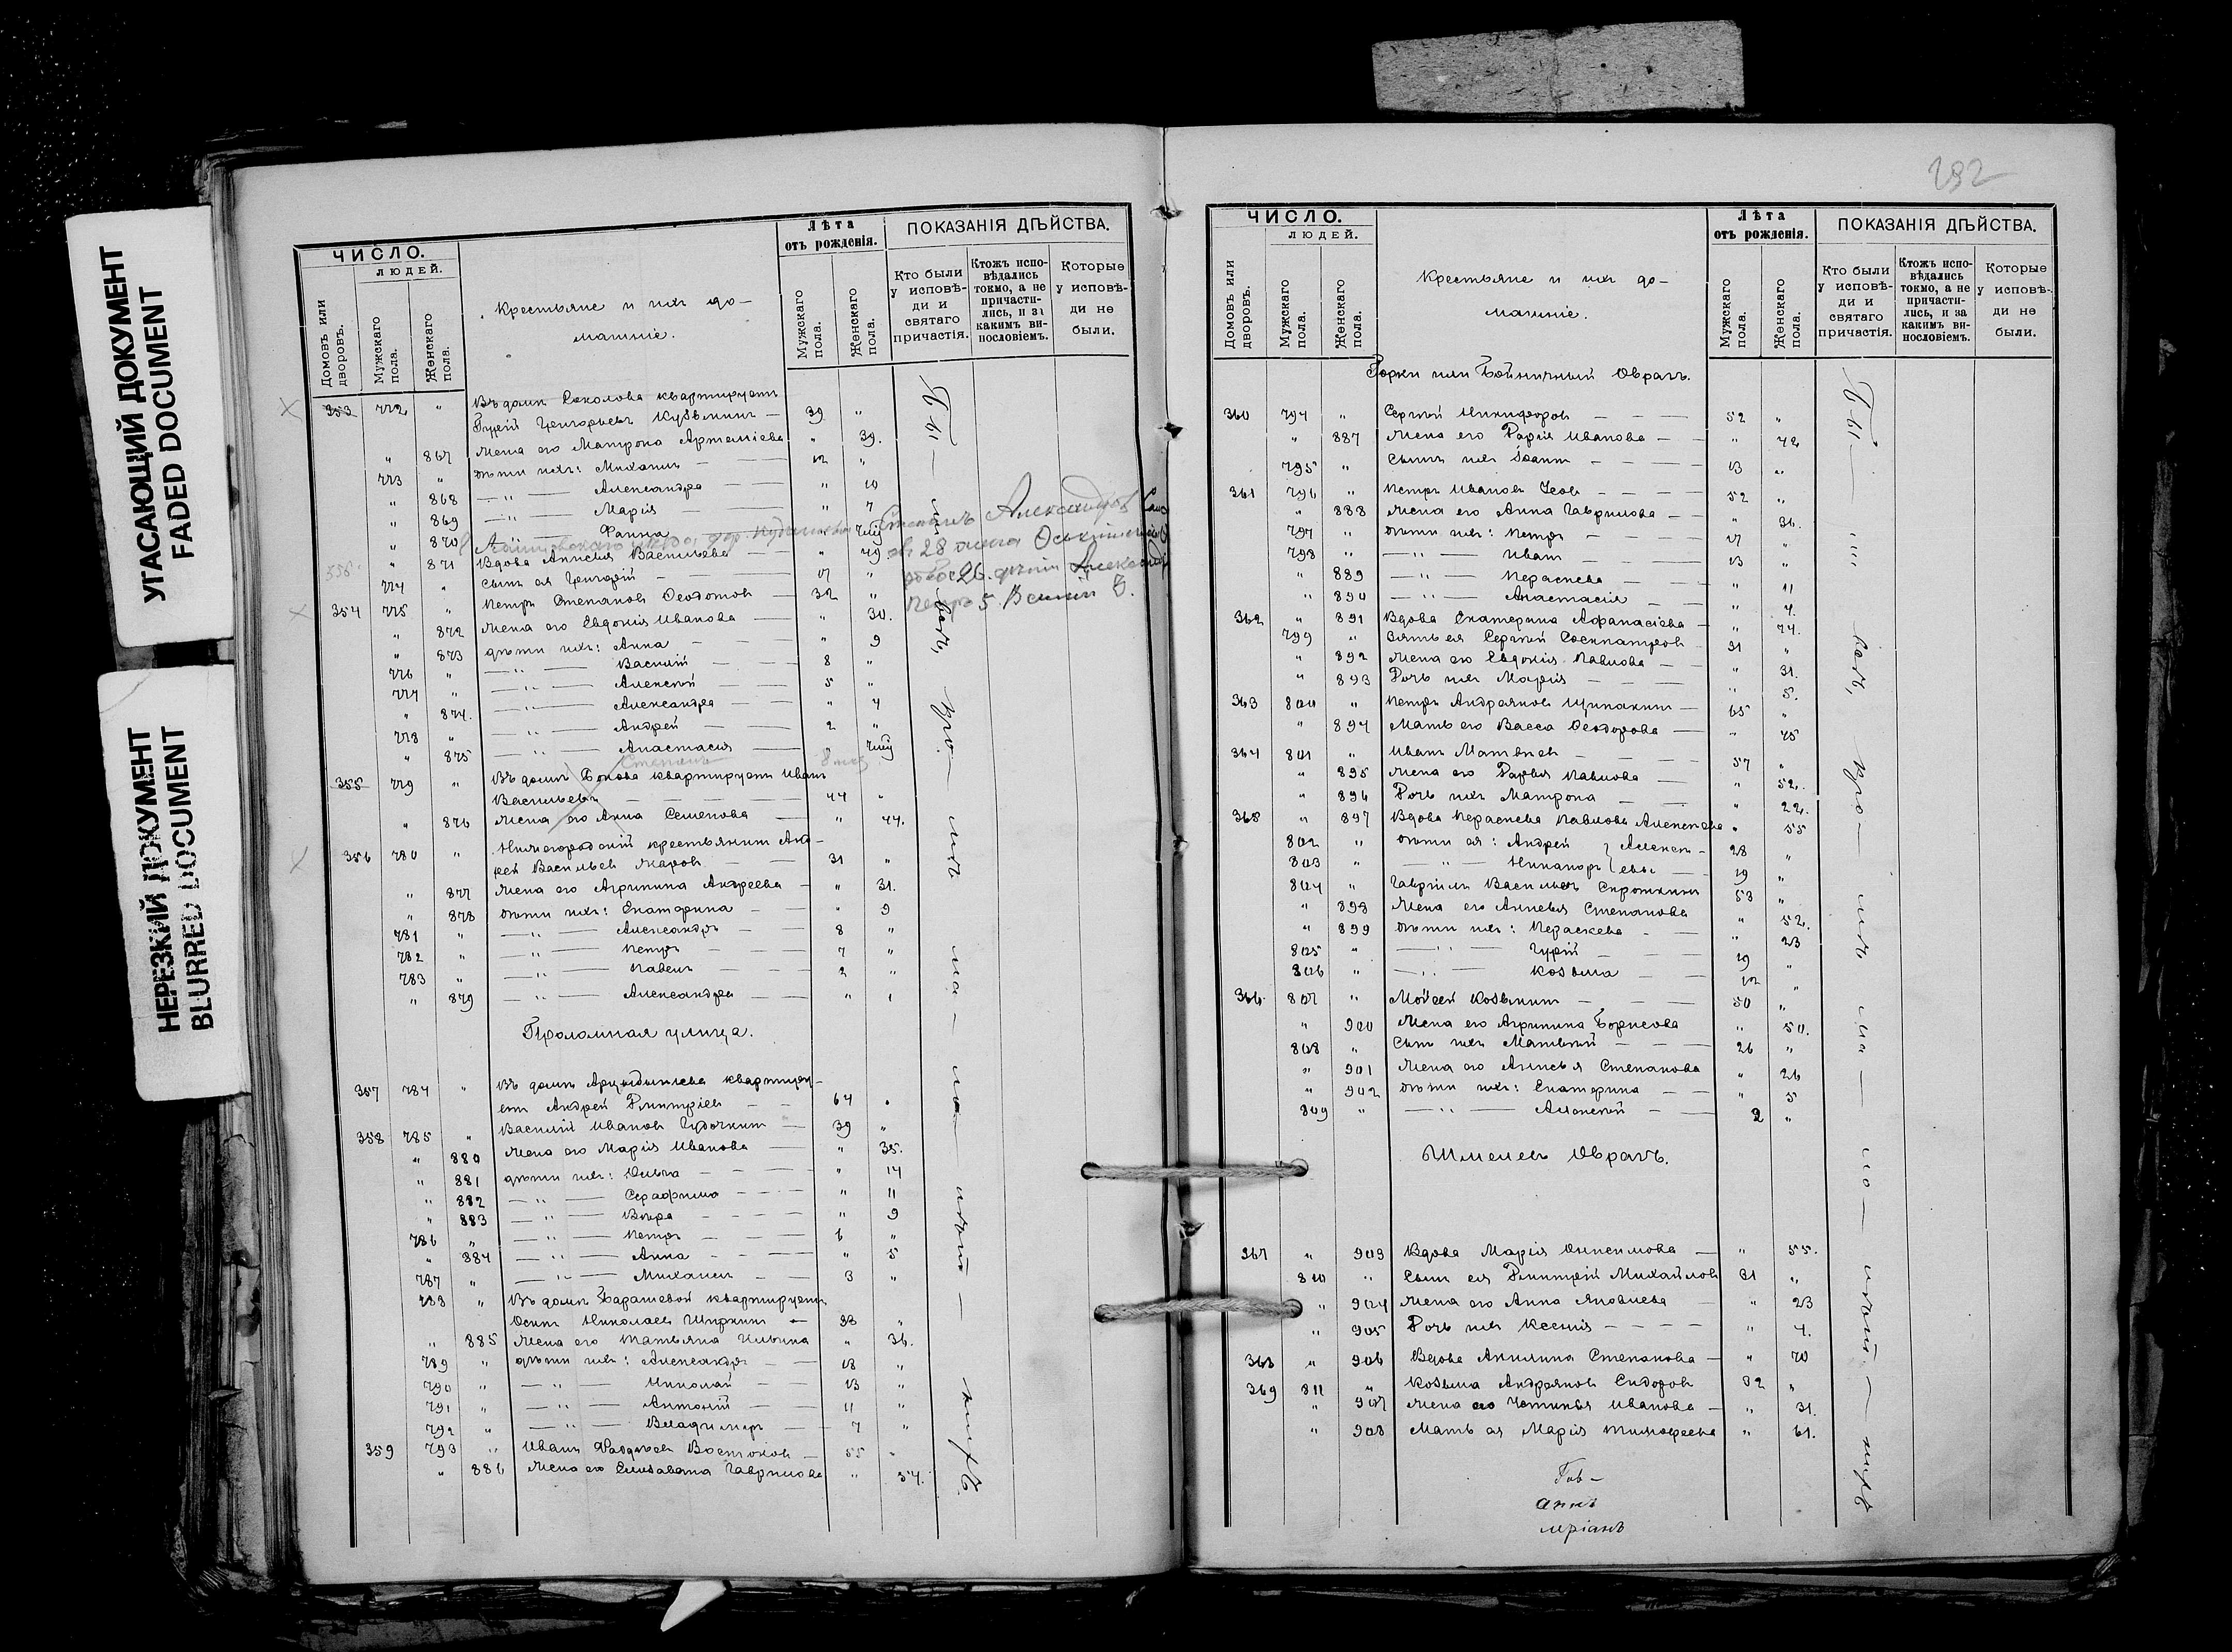 УГАСАЮЩИЙ ДОКУМЕНТ
FADED DOCUMENT
НЕРЕЗКИЙ ДОКУМЕНТ
BLURRED DOCUMENT
ЧИСЛО.
ЛЮДЕЙ.
Домовъ или дворовъ.
Мужскаго пола.
Женскаго пола.
Крестьяне и ихъ до-
машніе.
Лѣта
отъ рожденія.
Мужскаго пола.
Женскаго пола.
ПОКАЗАНІЯ ДѢЙСТВА.
Кто были у исповѣ-ди и святаго причастія.
Ктожъ испо-вѣдались токмо, а не причасти-лись, и за какимъ ви-нословіемъ.
Которые у исповѣ-ди не были.
353 772 " Въ домѣ Соколова квартируетъ
Григорьевъ Кузьминъ — 39 "
" 867 Жена его Матрона Артеміева " 39.
773 " дѣти ихъ: Михаилъ — 12 "
" 868 — " — Александра — " 10
" 869 — " — Марія — " 7
" 870 — " — Фаина
" 871 Вдова Анисия Васильева — " 49
774 " сынъ ея Григорій — 17 "
354 775 " Петръ Степановъ Ѳеодотовъ — 32 "
" 872 Жена его Евдокія Иванова — " 30.
" 873 дѣти ихъ: Анна — " 9
776 " — " — Василій — 8 "
777 " — " — Алексѣй — 5 "
" 874. — " — Александра — " 4
778 " — " — Андрей — 2 "
" 875 — " — Анастасія —
Степанъ
Александров
28
26
Петръ 5. Василій 3.
355 779 " Въ домѣ Бокова квартируетъ Иванъ
Васильевъ — 44 "
" 876 Жена его Анна Семенова — " 44.
356 780 " Нижегородскій крестьянинъ Анд-
рей Васильевъ Жаровъ — 31 "
" 877 Жена его Агрипина Андреева — " 31.
" 878 дѣти ихъ: Екатерина — " 9
781 " — " — Александръ — 8 "
782 " — " — Петръ — 7 "
783 " — " — Павелъ — 2 "
" 879 — " — Александра — " 1
Проломная улица.
357 784 " Въ домѣ квартиру-
етъ Андрей Дмитріевъ — 64 "
358 785 " Василій Ивановъ Гудочкинъ — 39 "
" 880 Жена его Марія Иванова — " 35.
" 881 дѣти ихъ: Ольга — " 14
" 882 — " — Серафима — " 11
" 883 — " — Вѣра — " 9
786 " — " — Петръ — 6 "
" 884 — " — Анна — " 5
787 " — " — Михаилъ — 3 "
788 " Въ домѣ Барашевой квартируетъ
Осипъ Николаевъ Ширкинъ — 38 "
" 885 Жена его Татьяна Ильина " 36.
789 " дѣти ихъ: Александръ — 18 "
790 " — " — Николай — 13 "
791 " — " — Антоній — 11 "
792 " — " — Владимиръ — 7 "
359 793 " Иванъ Ѳаддѣевъ Востоковъ — 55 "
" 886 Жена его Елизавета Гаврилова " 54.
292
ЧИСЛО.
ЛЮДЕЙ.
Домовъ или дворовъ.
Мужскаго пола.
Женскаго пола.
Крестьяне и ихъ до-
машніе.
Лѣта
отъ рожденія.
Мужскаго пола.
Женскаго пола.
ПОКАЗАНІЯ ДѢЙСТВА.
Кто были у исповѣ-ди и святаго причастія.
Ктожъ испо-вѣдались токмо, а не причасти-лись, и за какимъ ви-нословіемъ.
Которые у исповѣ-ди не были.
Горки или Бойничный Оврагъ.
360 794 " Сергѣй Никифоровъ — 52 "
" 887 Жена его Дарія Иванова — " 42
795 " Сынъ ихъ Іоаннъ — 13 "
361 796 " Петръ Ивановъ — 52 "
" 888 Жена его Анна Гаврилова — " 36.
797 " дѣти ихъ: Петръ — 17 "
798 " — " — Иванъ — 13 "
" 889 — " — Параскева — " 11
" 890 — " — Анастасія — " 4.
362 " 891 Вдова Екатерина Афанасіева — " 74.
799 " Зять ея Сергѣй Сосипатровъ 31 "
" 892 Жена его Евдокія Павлова — " 31.
" 893 Дочь ихъ Марія — " 5.
363 800 " Петръ Андреяновъ Щипакинъ — 65 "
" 894 Мать его Васса Ѳеодорова — " 75
364 801 " Иванъ Матвѣевъ 57 "
" 895 Жена его Дарья Павлова — " 52.
" 896 Дочь ихъ Матрона — " 22.
365 " 897 Вдова Параскева Павлова Алексѣева " 55
802 " дѣти ея: Андрей } Алексѣ- 28 "
803 " — " — Никаноръ } евы — 19 "
804 " Гавріилъ Васильевъ Сироткинъ 53 "
" 898 Жена его Анисья Степанова " 52.
" 899 дѣти ихъ: Параскева — " 23
805 " — " — Гурій — 19 "
806 " — " — Козьма — 12 "
366. 807 " Мойсей Козьминъ — 50 "
" 900 Жена его Агрипина Борисова " 50.
808 " Сынъ ихъ Матвѣй — 26 "
" 901 Жена его Анисья Степанова " 26
" 902 дѣти ихъ: Екатерина — " 5
809 " — " — Алексѣй — 2 "
Шмелевъ Оврагъ.
367 " 903 Вдова Марія Онисимова — " 55.
810 " Сынъ ея Дмитрій Михайловъ 31 "
" 904 Жена его Анна Яковлева — " 23
" 905 Дочь ихъ Ксенія — " 4.
368 " 906 Вдова Акилина Степанова — " 70
369 811 " Козьма Андреяновъ Сидоровъ 32 "
" 907 Жена его Фотинья Иванова — " 31.
" 908 Мать ея Марія Тимофеева " 61.